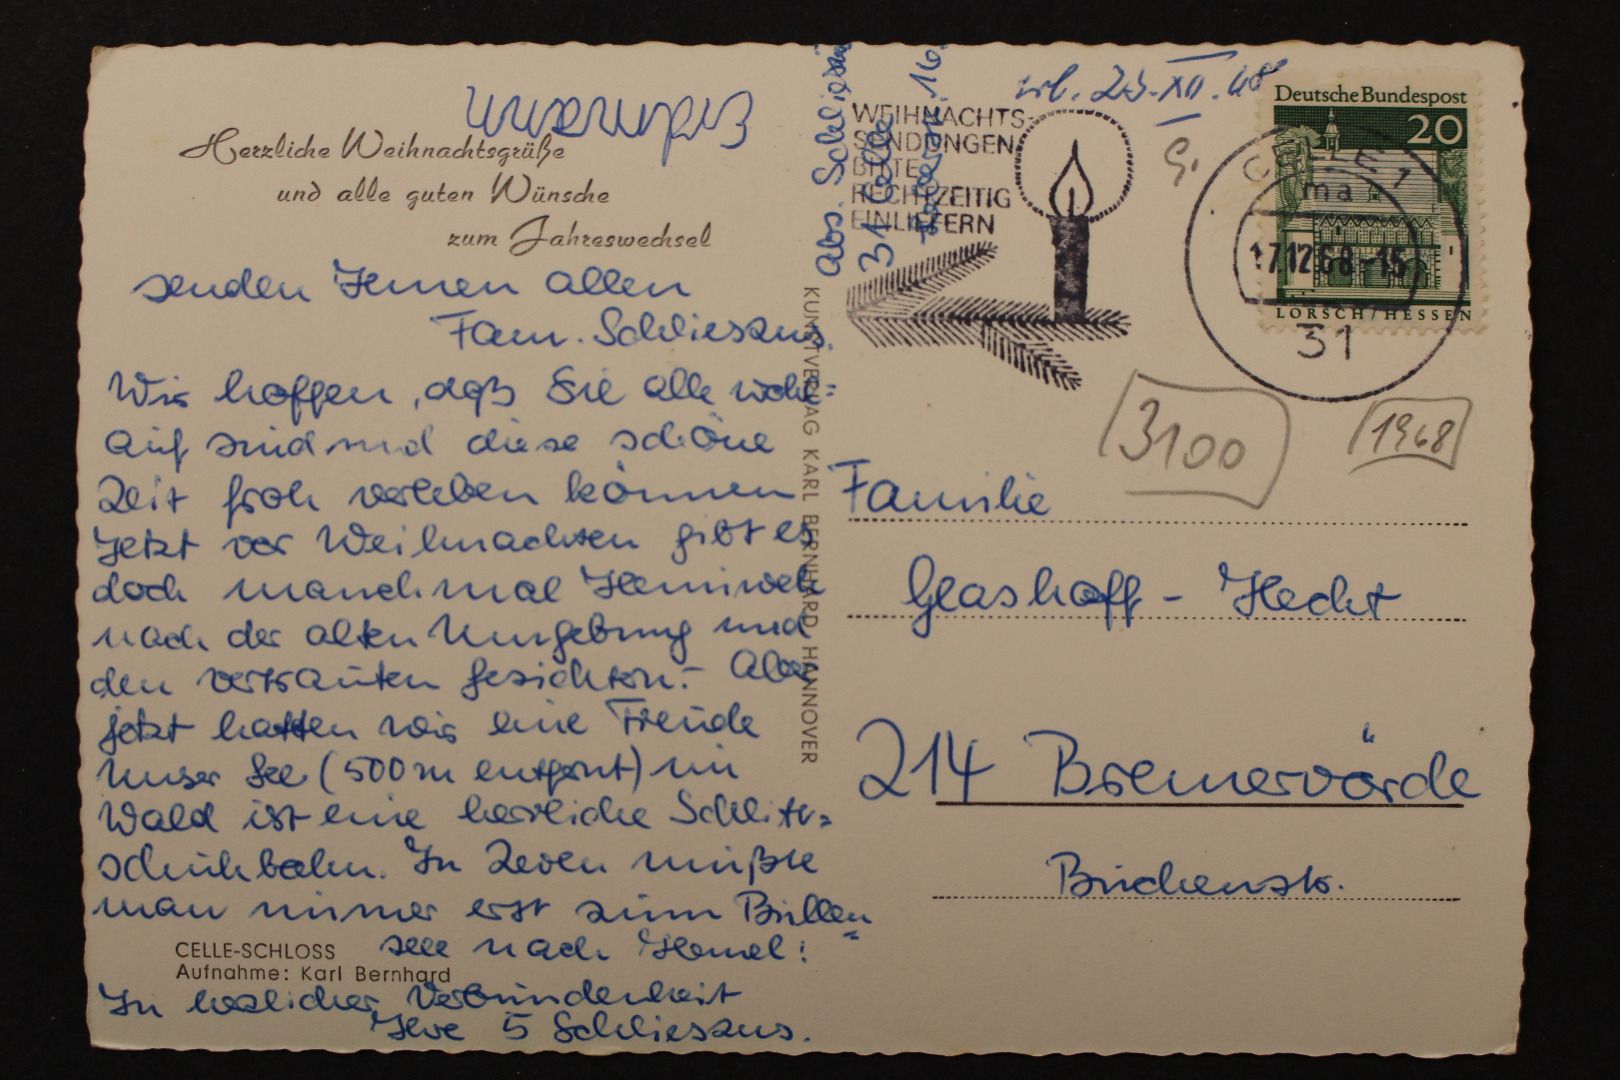 Erdmann
Herzliche Weihnachtsgrüße
und alle guten Wünsche
zum Jahreswechsel
senden Ihnen allen
Fam. Schlieszus.
Wir hoffen, daß Sie alle wohl=
auf sind und diese schöne
Zeit froh verleben können
Jetzt vor Weihnachten gibt es
doch manchmal Heimweh
nach der alten Umgebung und
den vertrauten Gesichtern.- Aber
jetzt hatten wir eine Freude
Unser See (500 m entfernt) im
Wald ist eine herrliche Schlitt=
schuhbahn. In Zeven mußte
man immer erst zum Bullen=
see nach Hemel!
In herzlicher Verbundenheit
Ihre 5 Schlieszus.
CELLE-SCHLOSS
Aufnahme: Karl Bernhard
KUNSTVERLAG KARL BERNHARD, HANNOVER
Abs. Schlieszus
31 Celle
16.
23.XII.68
WEIHNACHTS-
SENDUNGEN
BITTE
RECHTZEITIG
EINLIEFERN
Deutsche Bundespost
20
LORSCH/HESSEN
CELLE 1
ma
17.12.68-15
31
3100
1968
Familie
Glashoff - Hecht
214 Bremervörde